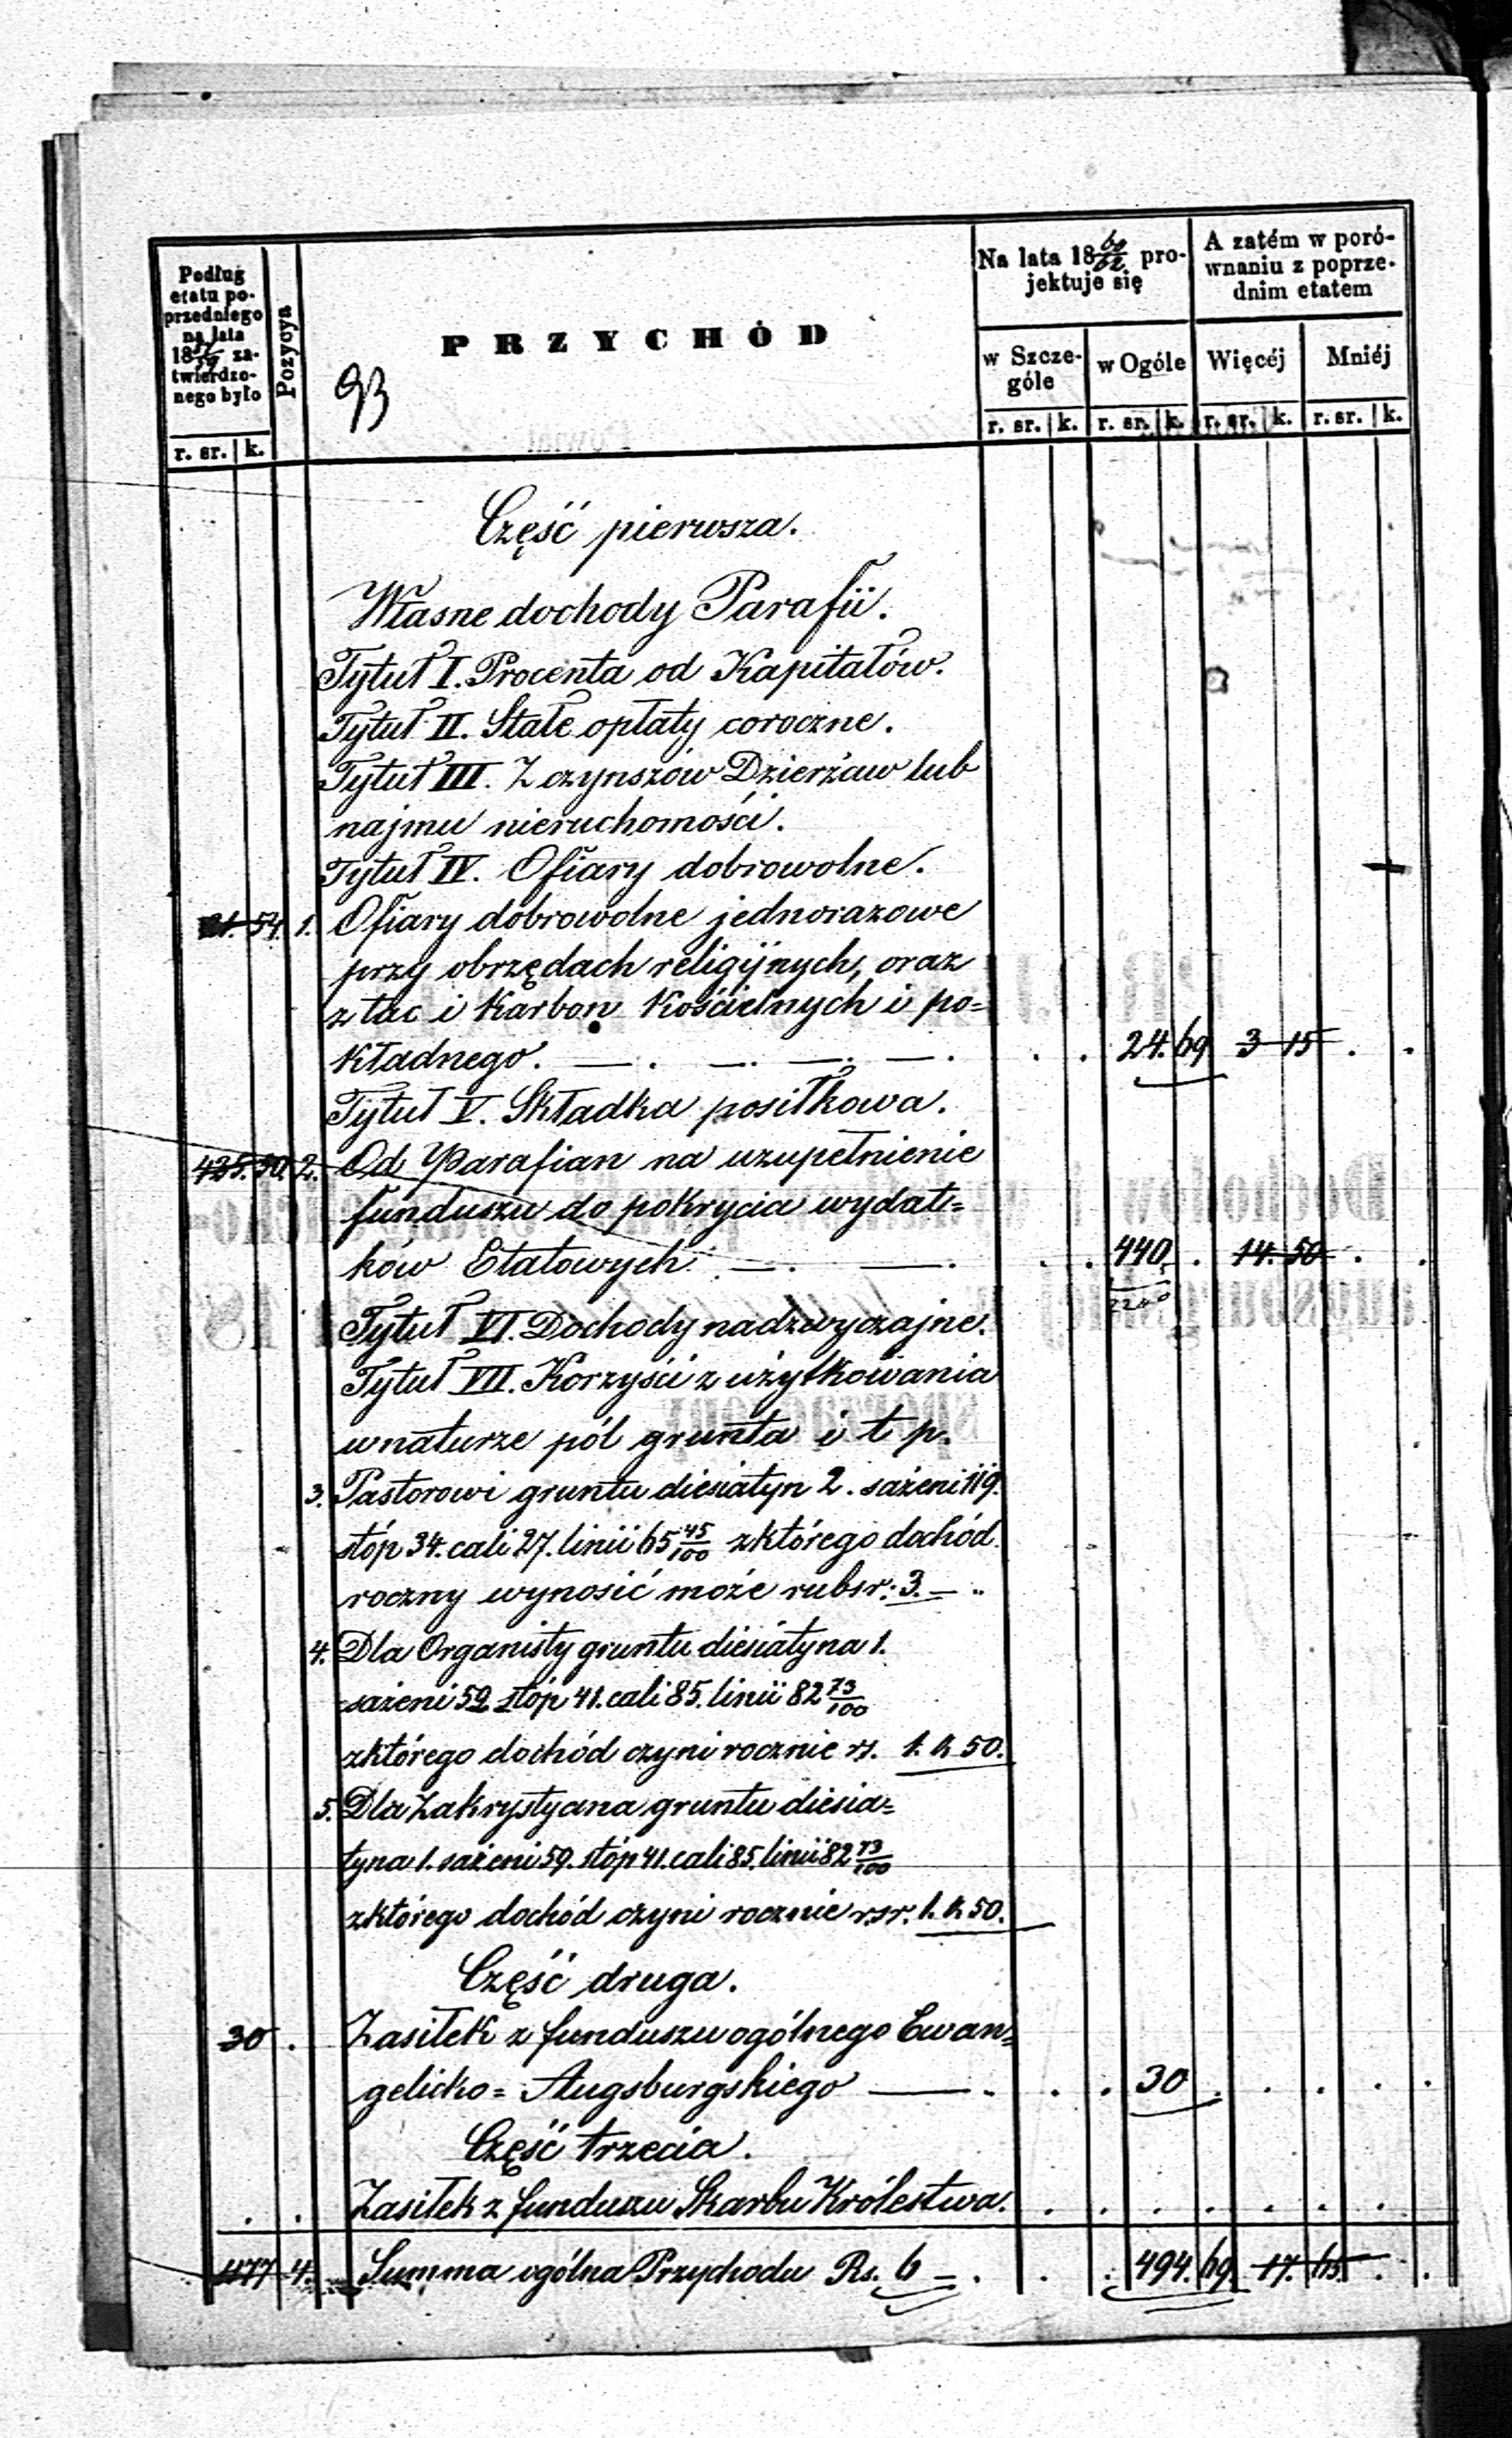 Podług
etatu po-
przedniego
na lata
18 57/59 za-
twierdzo-
nego było
r. sr. k.
Pozycya
PRZYCHÓD
93
Na lata 18 60/62 pro-
jektuje się
w Szcze-
góle
r. sr. k.
w Ogóle
r. sr. k.
A zatém w poró-
wnaniu z poprze-
dnim etatem
Więcéj
r. sr. k.
Mniéj
r. sr. k.
Część pierwsza.
Własne dochody Parafii.
Tytuł I. Procenta od Kapitałów.
Tytuł II. Stałe opłaty coroczne.
Tytuł III. Z czynszów Dzierżaw lub
najmu nieruchomości.
Tytuł IV. Ofiary dobrowolne.
21. 54. 1. Ofiary dobrowolne jednorazowe
przy obrzędach religijnych, oraz
z tac i Karbon Kościelnych i po=
kładnego. — . — . — . — . . . 24. 69 3 15 . .
Tytuł V. Składka posiłkowa.
425. 50. 2. Od Parafian na uzupełnienie
funduszu do pokrycia wydat=
ków Etatowych — . — . . . 440. . 14. 50 . .
Tytuł VI. Dochody nadzwyczajne.
Tytuł VII. Korzyści z użytkowania
w naturze pól grunta i t p.
3. Pastorowi gruntu diesiatyn 2. sażeni 119.
stóp 34. cali 27. linii 65 45/100 z którego dochód
roczny wynosić może rubsr: 3. — ..
4. Dla Organisty gruntu diesiatyna 1.
sażeni 59 stóp 41. cali 85. linii 82 73/100
z którego dochód czyni rocznie rs. 1. k 50.
5. Dla Zakrystyana gruntu diesia=
tyna 1. sażeni 59. stóp 41. cali 85. linii 82 73/100
z którego dochód czyni rocznie rsr. 1. k 50.
Część druga.
30 . Zasiłek z funduszu ogólnego Ewan=
gelicko = Augsburgskiego — . . . 30 . . . . . .
Część trzecia.
. . Zasiłek z funduszu Skarbu Królestwa. . . . . . . .
477 4. Summa ogólna Przychodu Rs. 6 — . . . 494. 69 17. 65. . .